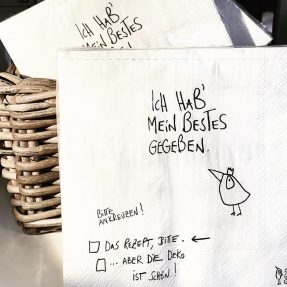 ICH HAB'
MEIN BESTES
GEGEBEN.
ICH HAB'
MEIN BESTES
GEGEBEN.
BITTE
ANKREUZEN!
DAS REZEPT, BITTE. ←
... ABER DIE DEKO
IST SCHÖN!